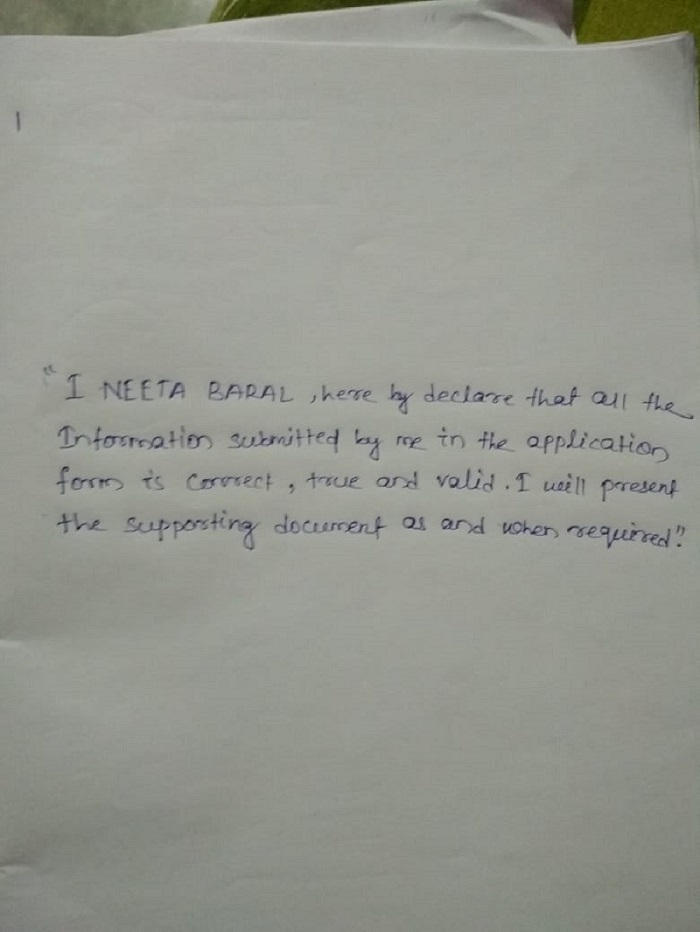 "I NEETA BARAL, here by declare that all the
Information submitted by me in the application
form is correct, true and valid. I will present
the supporting document as and when required."